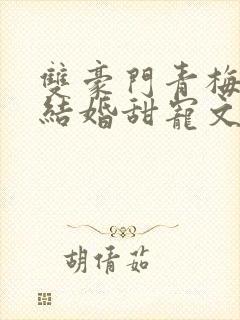 雙豪門青梅
結婚甜寵文
胡倩茹